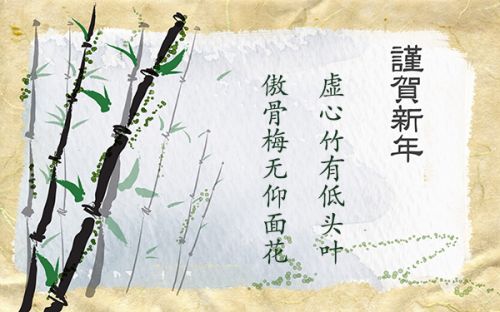 謹賀新年
虚心竹有低头叶
傲骨梅无仰面花